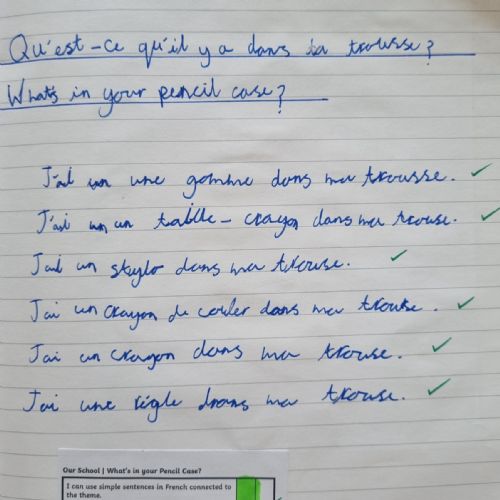 Qu'est-ce qu'il y a dans ta trousse?
What's in your pencil case?
J'ai un une gomme dans ma trousse.
J'ai un un taille-crayon dans ma trouse.
J'ai un stylo dans ma trouse.
J'ai un crayon de couler dans ma trouse.
J'ai un crayon dans ma trouse.
J'ai une règle dans ma trouse.
Our School | What's in your Pencil Case?
I can use simple sentences in French connected to
the theme.